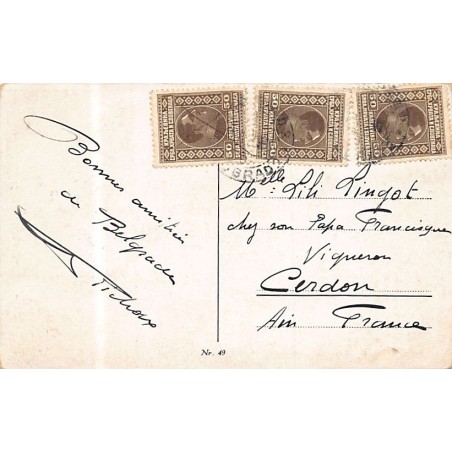 Bonnes amitiés
de Belgrade
Nr. 49
50 50
50
50
GRAD
Melle Lili Lingot
chez son Papa Francisque
Vigneron
Cerdon
Ain France